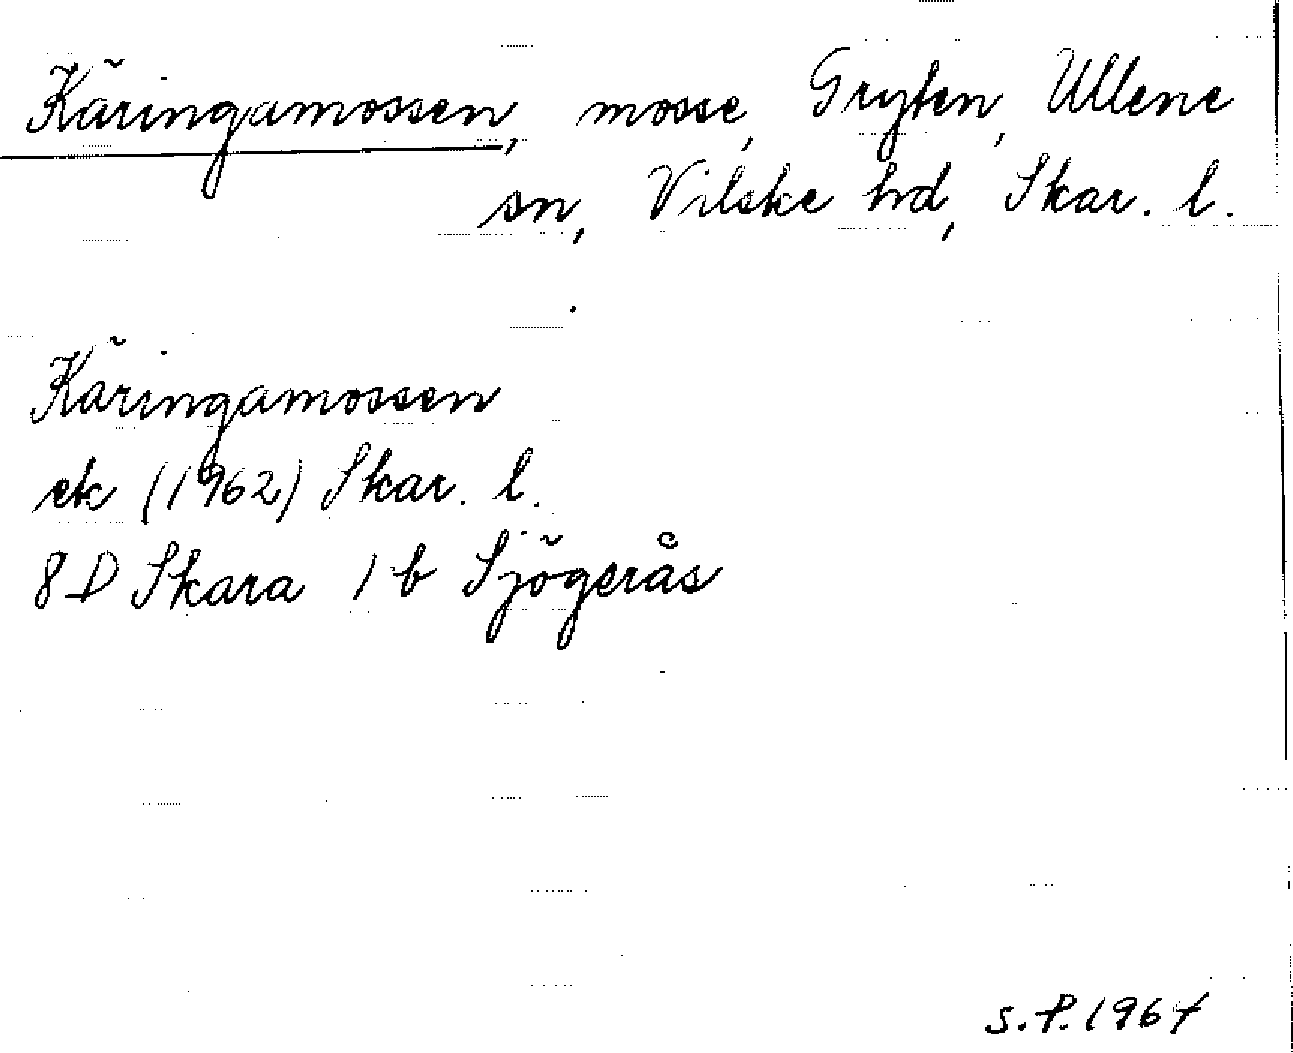 Käringamossen, mosse, Gryten, Ullene
sn, Vilske hd, Skar. l.
Käringamossen
ek (1962) Skar. l.
8D Skara 1b Sjögerås
S.P. 1964